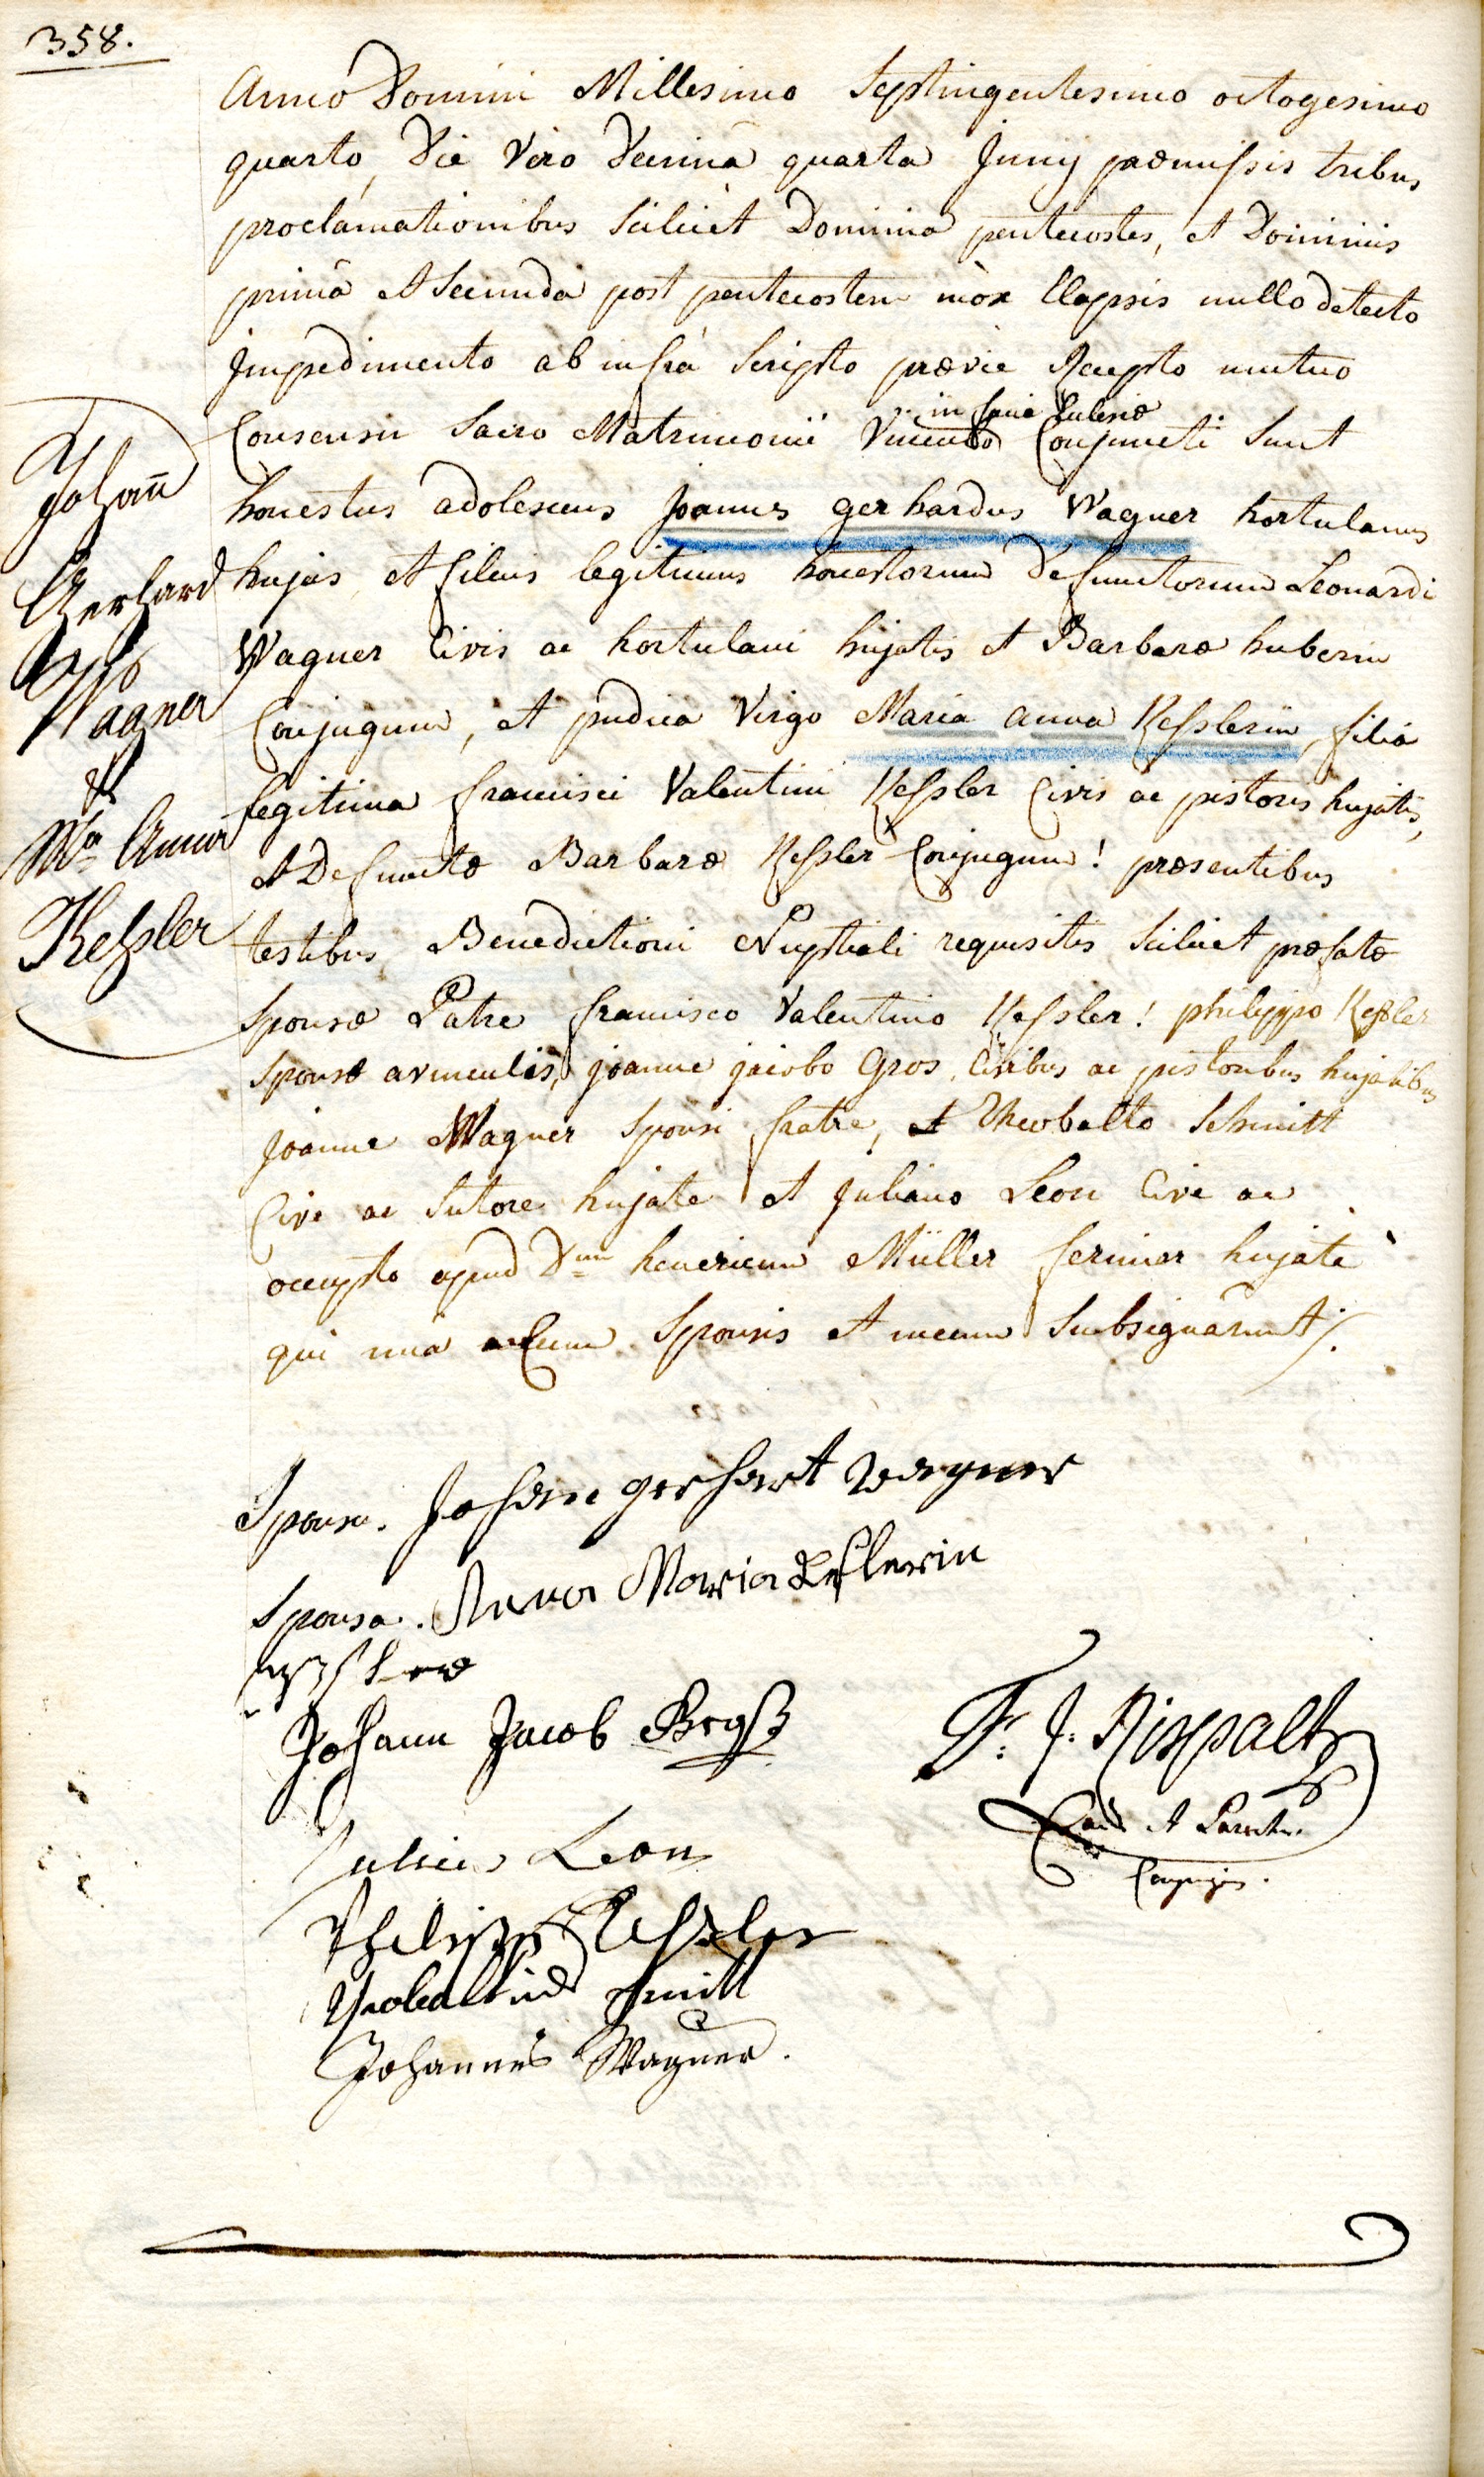 358.
Anno Domini Millesimo Septingentesimo octogesimo
quarto, Die Vero Decima quarta Junij præmissis tribus
proclamationibus Scilicet Dominica pentecostes, et Dominicis
primâ et Secunda post pentecosten mòx Elapsis nullo detecto
Impedimento ab infrà Scripto prævie Recepto mutuo
in facie Ecclesiæ
Consensu Sacro Matrimonii Vinculo Conjuncti Sunt
honestus adolescens Joannes gerhardus Wagner hortulanus
hujas, et filius legitimus honestorum Defunctorum Leonardi
Wagner Civis ac hortulani hujatis et Barbaræ huberin
Conjugum, et pudica Virgo Maria anna Keßlerin, filia
legitima francisci Valentini Keßler Civis ac pistoris hujatis,
et Defunctæ Barbaræ Keßler Conjugum! præsentibus
testibus Benedictioni Nuptiali requisitis Scilicet præfatæ
Sponsæ Patre francisco Valentino Keßler! philippo Keßler
Sponsæ avunculis, joanne jacobo Gros, Civibus ac pistoribus hujatibus
Joanne Wagner Sponsi fratre, et Theobalto Schmitt
Cive ac Sutore hujate et Juliano Leon Cive ac
occupto apud Dnum henericum Müller hujate
qui unà Cum Sponsis et mecum Subsignarunt /.
Johañ
Gerhard
Wagner
&
Ma Anna
Keßler
Sponsus. Johan gerhart wagner
Sponsa. Anna Maria Keßlerin
Johann Jacob Groß
F. J. Rispalt
Leon
Philipp Keßler
Schmitt
Johannes Wagner.